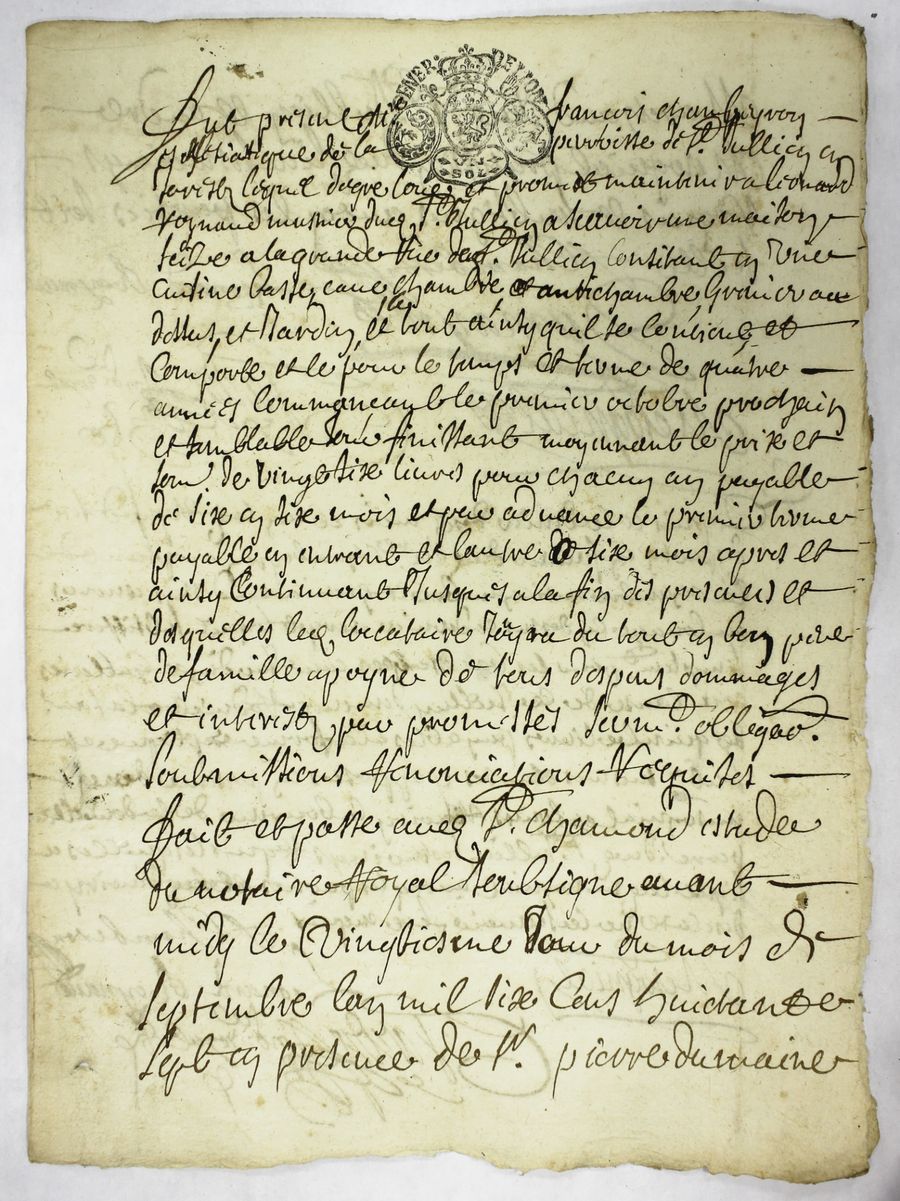 GENER. DE LYON
VN SOL
Fut present françois chambeyron
eclesiastique de la perroisse de St. Jullien en
Jarestz lequel de gré loue et promet maintenir a leonard
Reynaud dud. St. Jullien a scauoir une maison
size a la grande Rue dud. St. Jullien Consistant en Une
Cuisine basse, caue, chambre, et antichambre, Grenier au
dessus, et Jardin, et tout ainsy quil se Contient et
Comporte et le pour le temps et terme de quatre
années Commencant le premier octobre prochain
et semblable Jour finissant moyennant le prix et
som. de Vingt six liures pour chacun an payable
de six en six mois et par aduance le premier terme
payable en entrant et lautre de six mois apres et
ainsy Continuant Jusques a la fin des presentes et
desquelles led. Locataire Joyra du tout en bon pere
de famille a peyne de tous despens dommages
et interestz par promesses serm.t obligao.
Soubmissions Renonciations Requises
fait et passe aud. St. chamond estude
du notaire Royal soubsigne auant
midy le Vingtiesme Jour du mois de
septembre lan mil six Cens huictante
sept en presence de sr. pierre dumaine